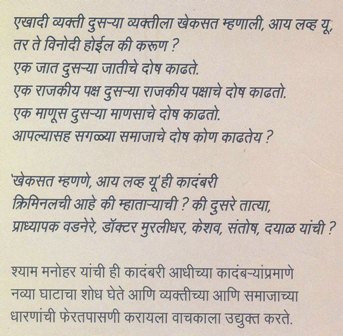 एखादी व्यक्ती दुसऱ्या व्यक्तीला खेकसत म्हणाली, आय लव्ह यू,
तर ते विनोदी होईल की करूण ?
एक जात दुसऱ्या जातीचे दोष काढते.
एक राजकीय पक्ष दुसऱ्या राजकीय पक्षाचे दोष काढतो.
एक माणूस दुसऱ्या माणसाचे दोष काढतो.
आपल्यासह सगळ्या समाजाचे दोष कोण काढतेय ?
'खेकसत म्हणणे, आय लव्ह यू' ही कादंबरी
क्रिमिनलची आहे की म्हाताऱ्याची ? की दुसरे तात्या,
प्राध्यापक वडनेरे, डॉक्टर मुरलीधर, केशव, संतोष, दयाळ यांची ?
श्याम मनोहर यांची ही कादंबरी आधीच्या कादंबऱ्यांप्रमाणे
नव्या घाटाचा शोध घेते आणि व्यक्तीच्या आणि समाजाच्या
धारणांची फेरतपासणी करायला वाचकाला उद्युक्त करते.